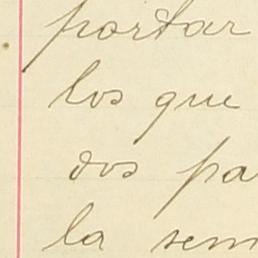 portar
los que
dos pa
la sem